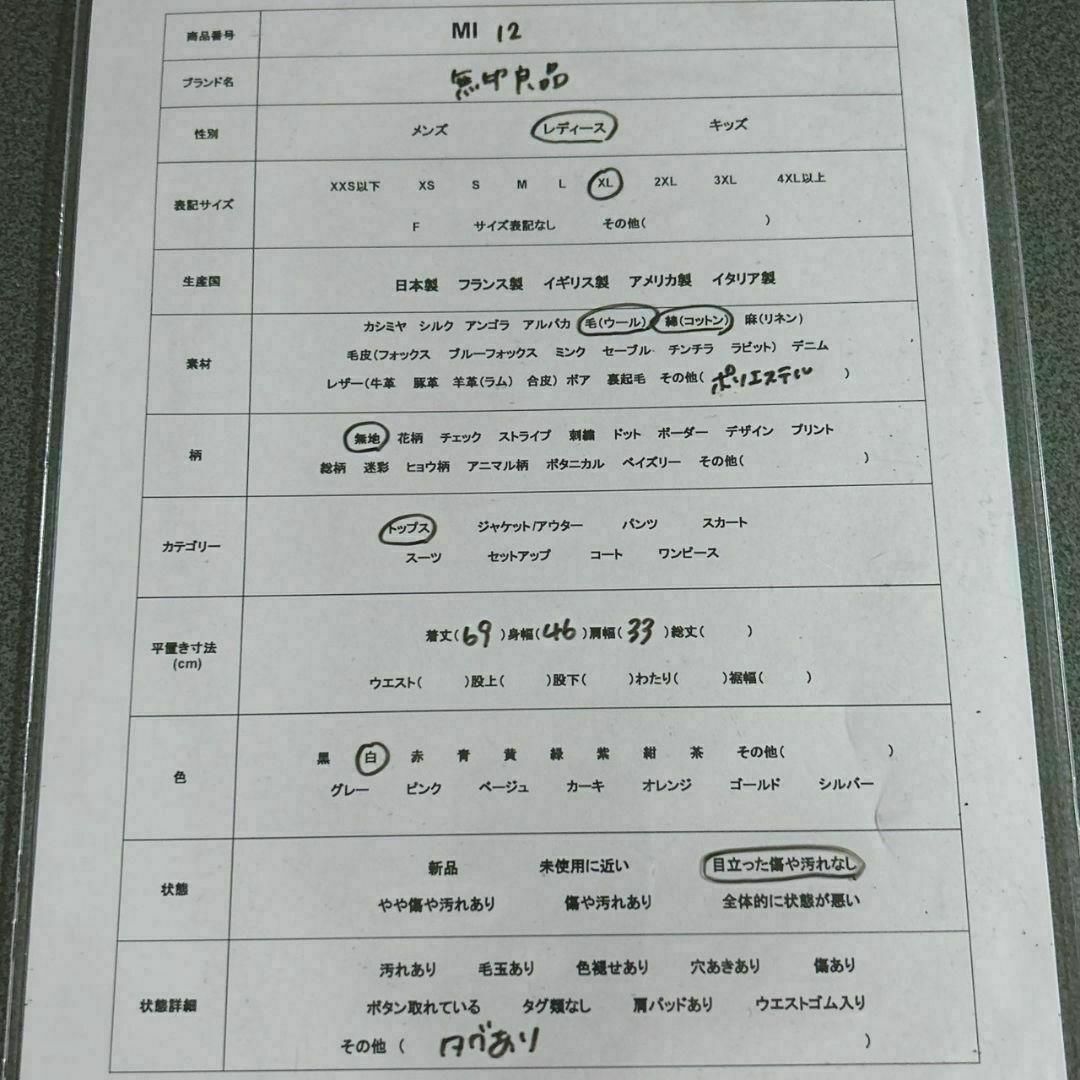 商品番号 MI 12
ブランド名 無印良品
性別 メンズ レディース キッズ
表記サイズ
XXS以下 XS S M L XL 2XL 3XL 4XL以上
F サイズ表記なし その他( )
生産国 日本製 フランス製 イギリス製 アメリカ製 イタリア製
素材
カシミヤ シルク アンゴラ アルパカ 毛(ウール) 綿(コットン) 麻(リネン)
毛皮(フォックス ブルーフォックス ミンク セーブル チンチラ ラビット) デニム
レザー(牛革 豚革 羊革(ラム) 合皮) ボア 裏起毛 その他( ポリエステル )
柄
無地 花柄 チェック ストライプ 刺繍 ドット ボーダー デザイン プリント
総柄 迷彩 ヒョウ柄 アニマル柄 ボタニカル ペイズリー その他( )
カテゴリー
トップス ジャケット/アウター パンツ スカート
スーツ セットアップ コート ワンピース
平置き寸法
(cm)
着丈( 69 )身幅( 46 )肩幅( 33 )総丈( )
ウエスト( )股上( )股下( )わたり( )裾幅( )
色
黒 白 赤 青 黄 緑 紫 紺 茶 その他( )
グレー ピンク ベージュ カーキ オレンジ ゴールド シルバー
状態
新品 未使用に近い 目立った傷や汚れなし
やや傷や汚れあり 傷や汚れあり 全体的に状態が悪い
状態詳細
汚れあり 毛玉あり 色褪せあり 穴あきあり 傷あり
ボタン取れている タグ類なし 肩パッドあり ウエストゴム入り
その他 ( タグあり )